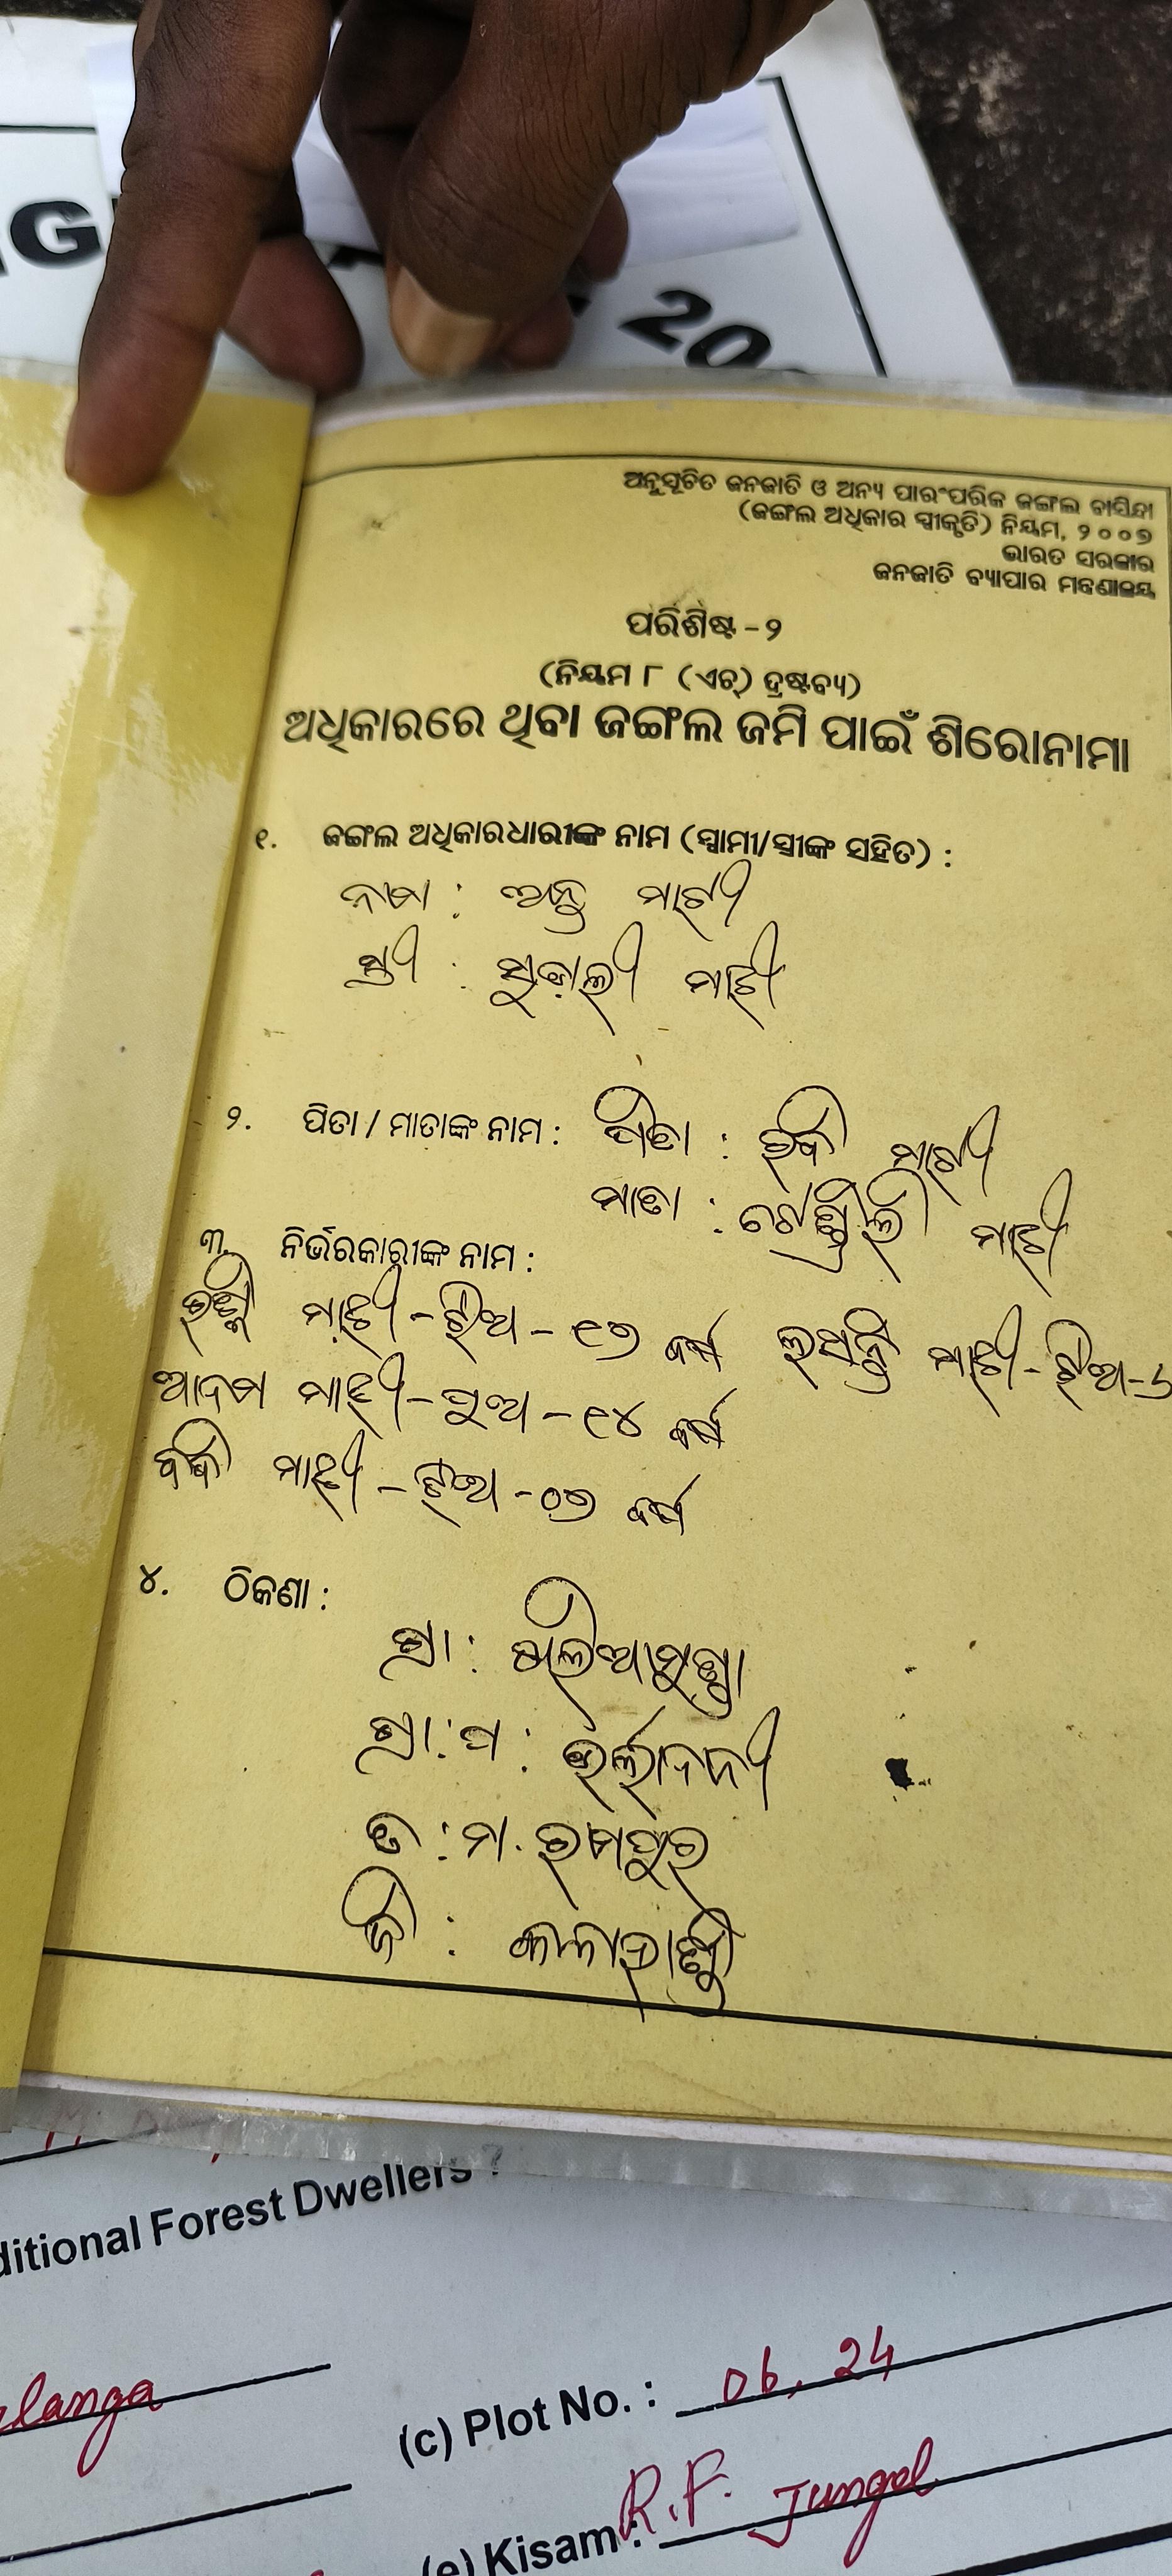 G
20
ଅନୁସୂଚିତ ଜନଜାତି ଓ ଅନ୍ୟ ପାରଂପରିକ ଜଙ୍ଗଲ ବାସିନ୍ଦା
(ଜଙ୍ଗଲ ଅଧିକାର ସ୍ୱୀକୃତି) ନିୟମ, ୨୦୦୭
ଭାରତ ସରକାର
ଜନଜାତି ବ୍ୟାପାର ମନ୍ତ୍ରଣାଳୟ
ପରିଶିଷ୍ଟ - ୨
(ନିୟମ ୮ (ଏଚ୍) ଦ୍ରଷ୍ଟବ୍ୟ)
ଅଧିକାରରେ ଥିବା ଜଙ୍ଗଲ ଜମି ପାଇଁ ଶିରୋନାମା
୧. ଜଙ୍ଗଲ ଅଧିକାରଧାରୀଙ୍କ ନାମ (ସ୍ୱାମୀ/ସ୍ତ୍ରୀଙ୍କ ସହିତ) :
ନାମ : ମାଝୀ
ସ୍ତ୍ରୀ : ମାଝୀ
୨. ପିତା / ମାତାଙ୍କ ନାମ : ପିତା : ରବି ମାଝୀ
ମାତା : ମାଝୀ
୩. ନିର୍ଭରକାରୀଙ୍କ ନାମ :
ମାଝୀ - ଝିଅ - ୧୭ ବର୍ଷ ମାଝୀ - ଝିଅ - ୬
ଆଦମ ମାଝୀ - ପୁଅ - ୧୪ ବର୍ଷ
ମାଝୀ - ଝିଅ - ୦୭ ବର୍ଷ
୪. ଠିକଣା :
ଗ୍ରା :
ଗ୍ରା : ପ :
ତ : ମ. ରାମପୁର
ଜି : କଳାହାଣ୍ଡି
ditional Forest Dwellers ?
langa
(c) Plot No. : 06, 24
(e) Kisam : R.F. Jungel